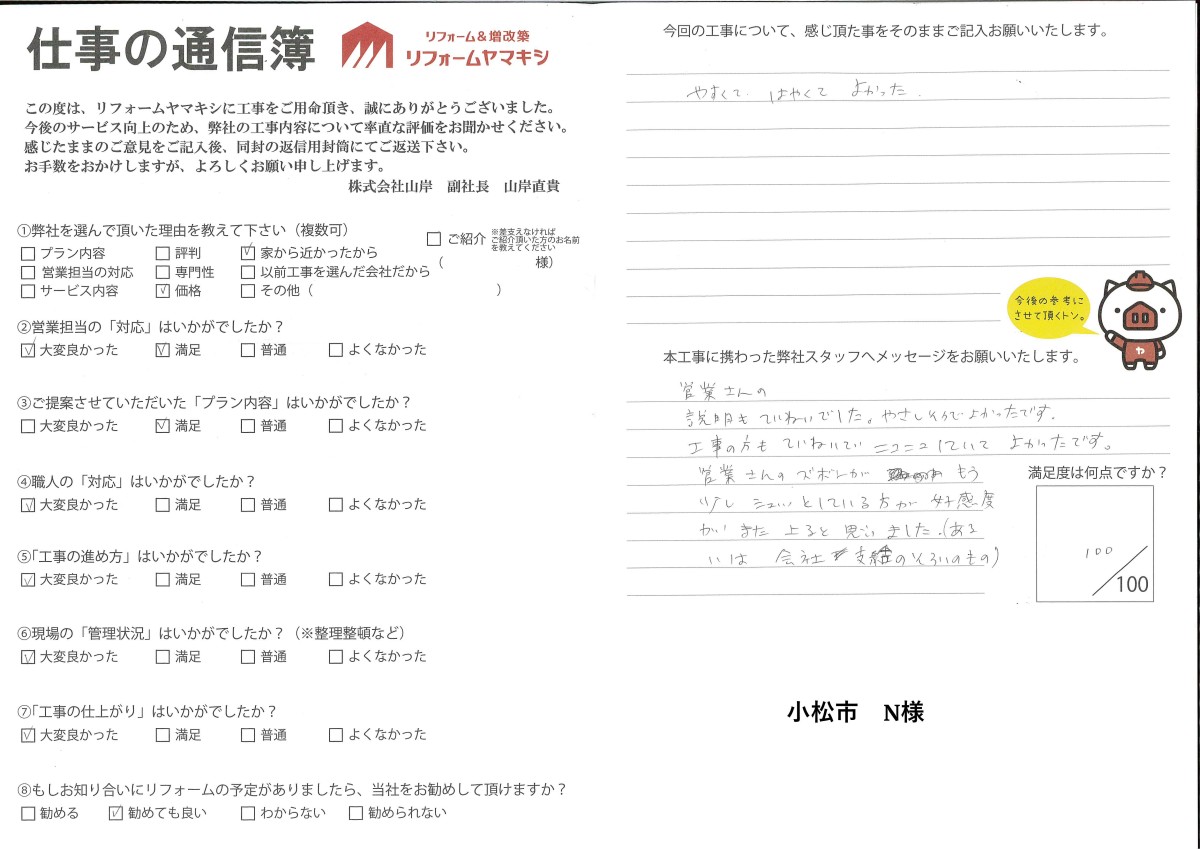 仕事の通信簿
リフォーム&増改築
リフォームヤマキシ
この度は、リフォームヤマキシに工事をご用命頂き、誠にありがとうございました。
今後のサービス向上のため、弊社の工事内容について率直な評価をお聞かせください。
感じたままのご意見をご記入後、同封の返信用封筒にてご返送下さい。
お手数をおかけしますが、よろしくお願い申し上げます。
株式会社山岸 副社長 山岸直貴
①弊社を選んで頂いた理由を教えて下さい（複数可）
□プラン内容 □評判 ☑家から近かったから
□営業担当の対応 □専門性 □以前工事を選んだ会社だから
□サービス内容 ☑価格 □その他（ ）
□ご紹介
※差支えなければ
ご紹介頂いた方のお名前
を教えてください
（ 様）
②営業担当の「対応」はいかがでしたか？
☑大変良かった ☑満足 □普通 □よくなかった
③ご提案させていただいた「プラン内容」はいかがでしたか？
□大変良かった ☑満足 □普通 □よくなかった
④職人の「対応」はいかがでしたか？
☑大変良かった □満足 □普通 □よくなかった
⑤「工事の進め方」はいかがでしたか？
☑大変良かった □満足 □普通 □よくなかった
⑥現場の「管理状況」はいかがでしたか？（※整理整頓など）
☑大変良かった □満足 □普通 □よくなかった
⑦「工事の仕上がり」はいかがでしたか？
☑大変良かった □満足 □普通 □よくなかった
⑧もしお知り合いにリフォームの予定がありましたら、当社をお勧めして頂けますか？
□勧める ☑勧めても良い □わからない □勧められない
今回の工事について、感じ頂た事をそのままご記入お願いいたします。
やすくて はやくて よかった.
今後の参考に
させて頂くトン。
ヤ
本工事に携わった弊社スタッフへメッセージをお願いいたします。
営業さんの
説明もていねいでした。やさしそうでよかったです.
工事の方も ていねいで ニコニコしていて よかったです。
営業さんのズボンが もう
少し としている方が 好感度
がいまた 上ると思いました.(ある
いは 会社 支給のそろいのもの)
満足度は何点ですか？
100
/100
小松市 N様